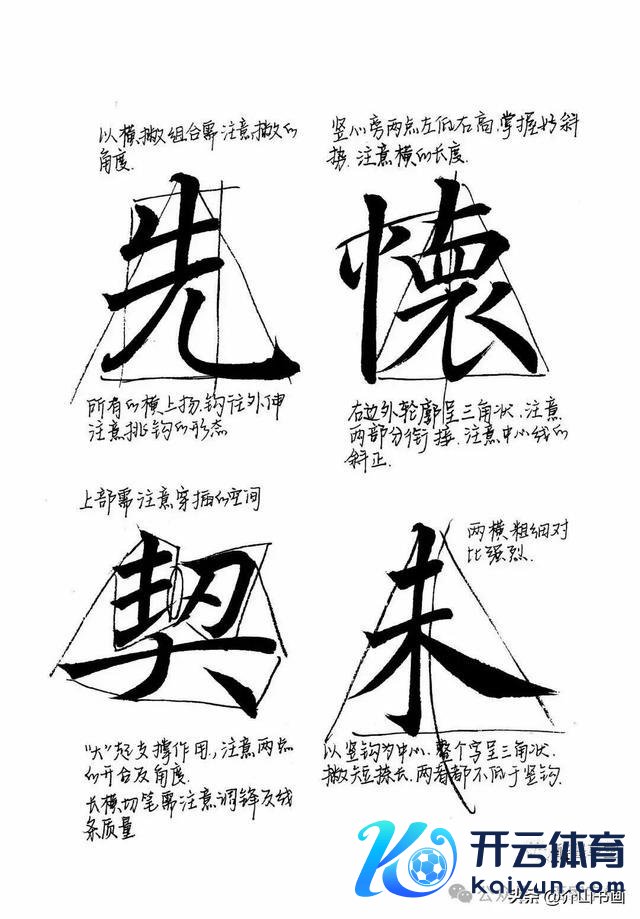 以横撇组合需注意撇的
角度.
竖心旁两点左低右高.掌握好斜
势.注意横的长度.
先
懷
所有的横上扬.钩往外伸
注意挑钩的形态
右边外轮廓呈三角状.注意
两部分衔接.注意中心线的
斜正.
上部需注意穿插的空间
两横粗细对
比强烈.
契
未
"大"起支撑作用,注意两点
的开合及角度.
长横切笔需注意调锋及线
条质量
以竖钩为中心.整个字呈三角状.
撇短捺长.两者都不低于竖钩.
开云体育
kaiyun.com
公众
头条 @介山书画